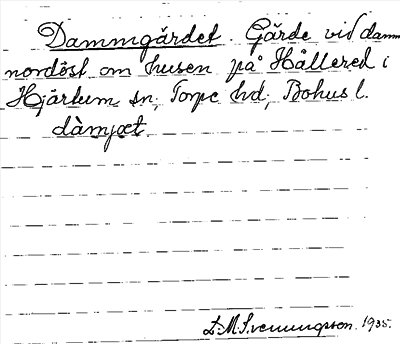 Dammgärdet. Gärde vid damm
nordöst om husen på Hällered i
Hjärtum sn, Torpe hd, Bohus l.
dàmjæt.
D. M. Svenungsson. 1935.